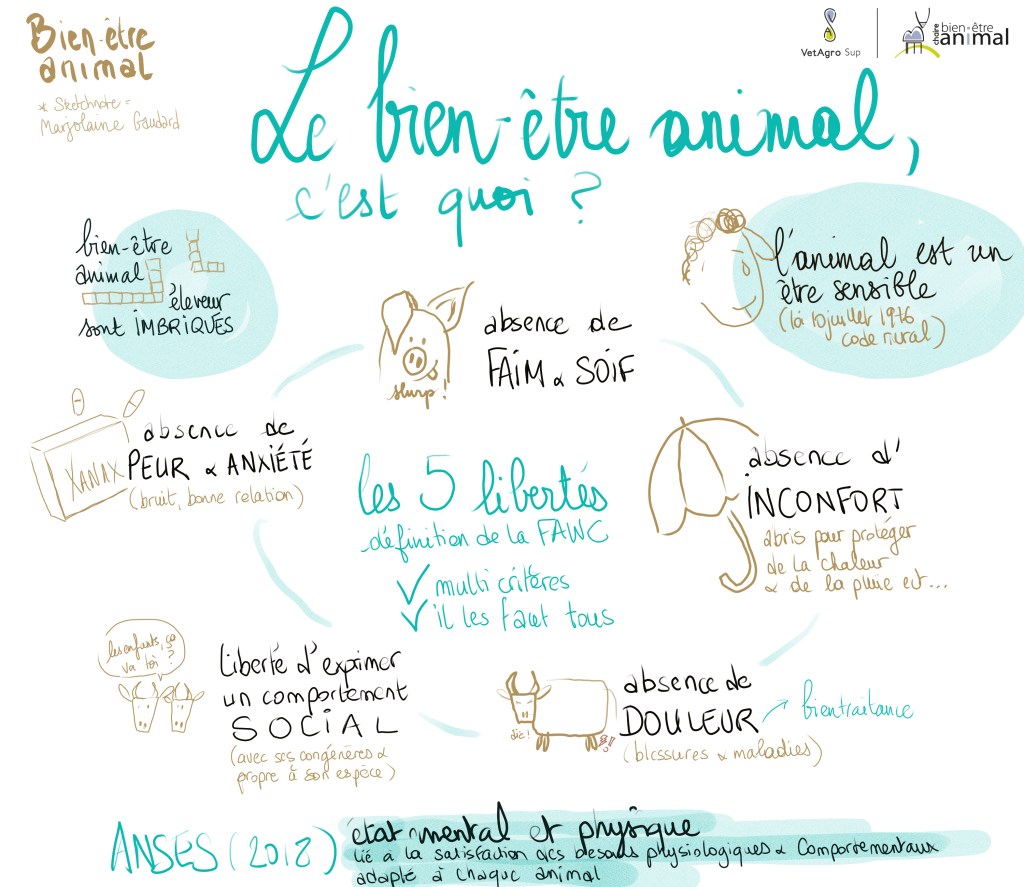 Bien-être
animal
* Sketchnote =
Marjolaine Gaudard
VetAgro Sup
chaire
bien-être
animal
Le bien-être animal,
c'est quoi ?
bien-être
animal
éleveur
sont IMBRIQUÉS
l'animal est un
être sensible
(loi 10 juillet 1976
code rural)
slurp !
absence de
FAIM & SOIF
XANAX
absence de
PEUR & ANXIÉTÉ
(bruit, bonne relation)
absence d'
INCONFORT
abris pour protéger
de la chaleur
& de la pluie ect...
les 5 libertés
définition de la FAWC
multi critères
il les faut tous
les enfants, ça
va toi ?
liberté d'exprimer
un comportement
SOCIAL
(avec ses congénères &
propre à son espèce)
absence de
DOULEUR
bientraitance
(blessures & maladies)
ANSES (2018)
état mental et physique
lié à la satisfaction des besoins physiologiques & comportementaux
adapté à chaque animal